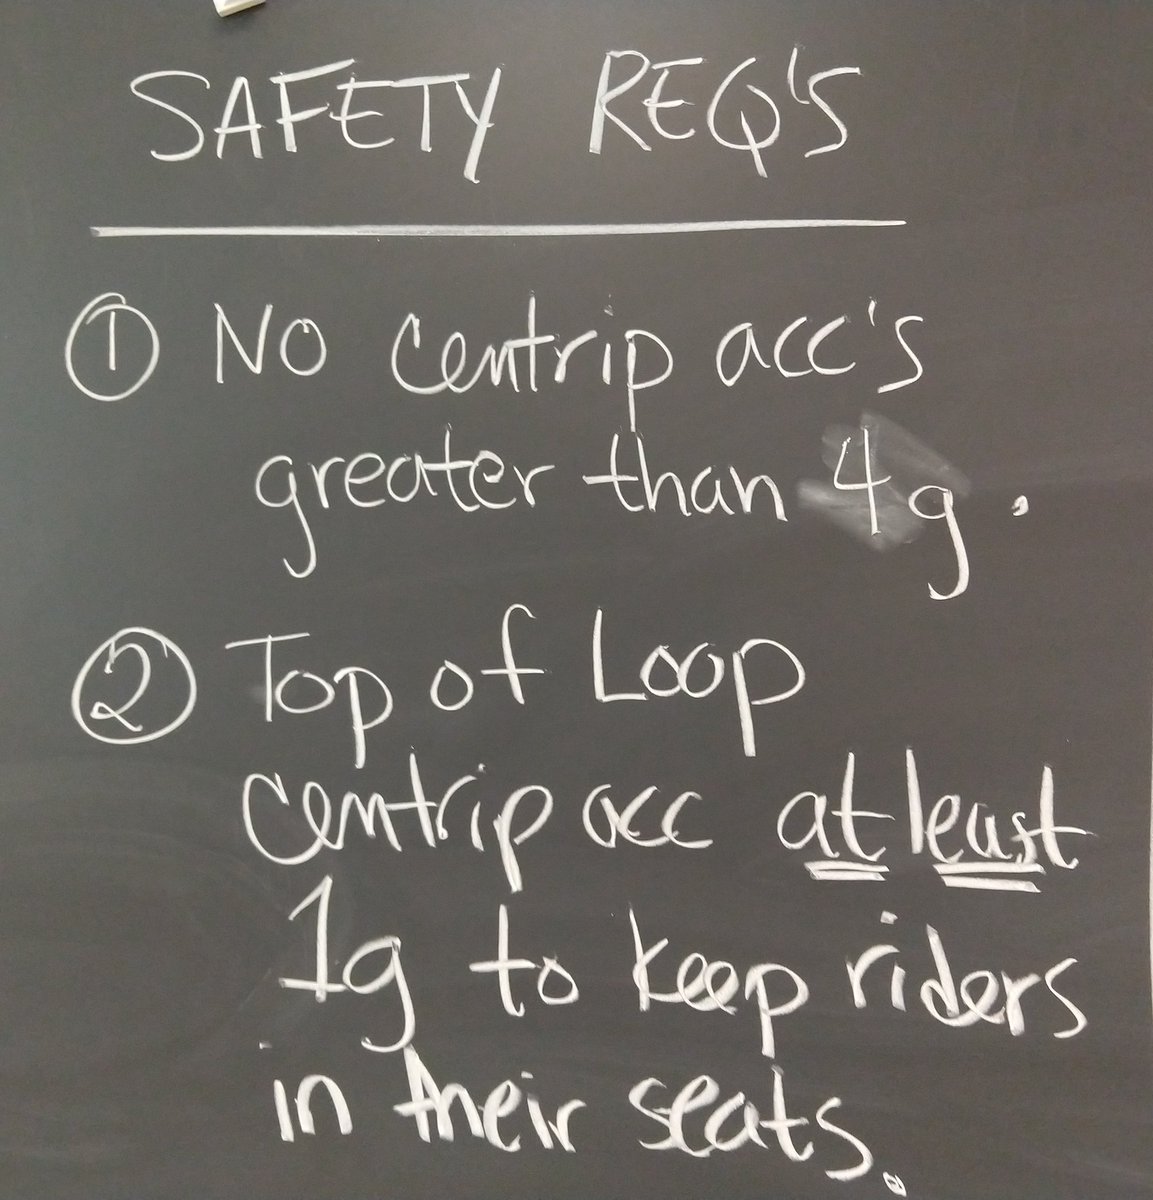 SAFETY REQ'S
① No centrip acc's
greater than 4g.
② Top of Loop
centrip acc at least
1g to keep riders
in their seats.